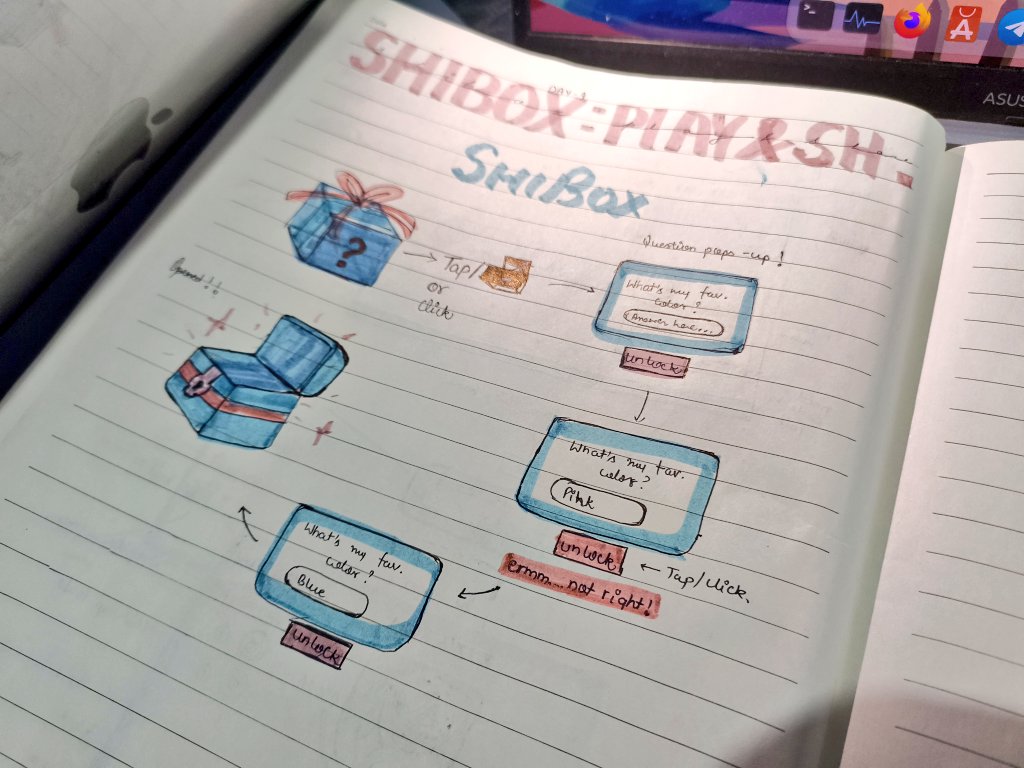 DAY-1
SHIBOX: PLAY & SH.
SHIBOX
?
Tap/
or
click
Question pops-up!
What's my fav.
color?
Answer here...
unlock
What's my fav.
color?
Pink
unlock
← Tap/click.
ermm... not right!
What's my fav.
color?
Blue
unlock
Opened!!
ASUS